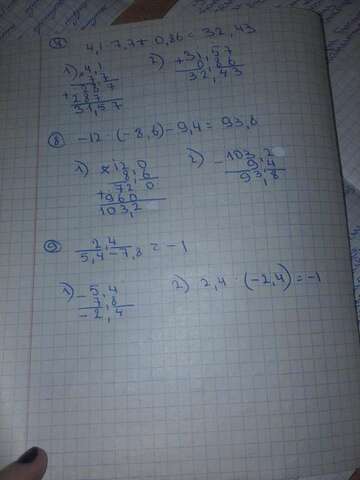 4,1 · 7,7 + 0,86 = 32,43
1) × 4,1
7,7
+ 287
287
31,57
2) + 31,57
0,86
32,43
8 -12 · (-8,6) - 9,4 = 93,8
1) × 12,0
8,6
+ 72 0
960
103,2
2) - 103,2
9,4
93,8
9 2,4
5,4 - 7,8 = -1
1) - 5,4
7,8
-2,4
2) 2,4 : (-2,4) = -1